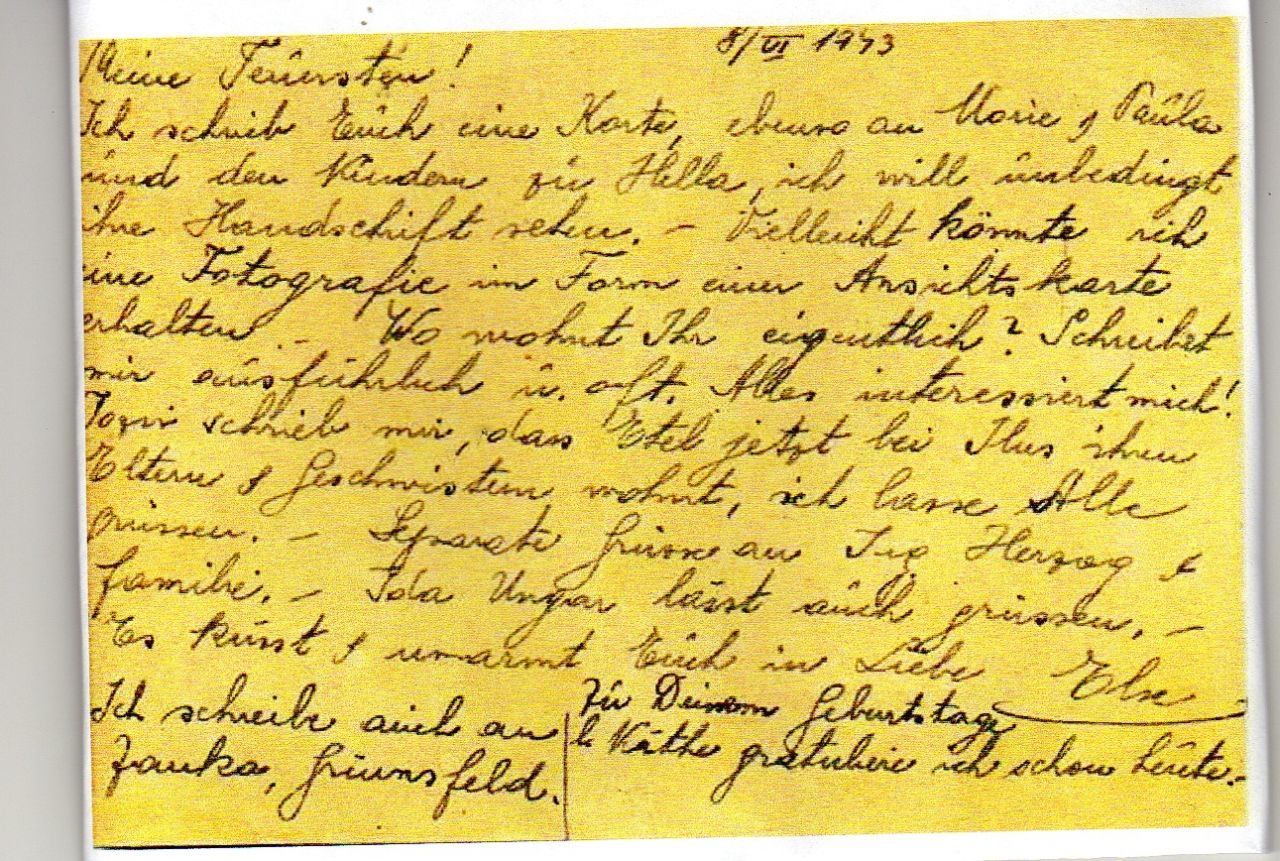 8/VI 1943
Meine Teuersten!
Ich schrieb Euch eine Karte, ebenso an Marie & Paula
und den Kindern zu Hella, ich will unbedingt
ihre Handschrift sehen. – Vielleicht könnte ich
eine Fotografie im Form einer Ansichtskarte
erhalten. – Wo wohnt Ihr eigentlich? Schreibet
mir ausführlich u. oft. Alles interessiert mich!
schrieb mir, dass Etel jetzt bei Ilus ihren
Eltern & Geschwistern wohnt, ich lasse Alle
grüssen. – Separate Grüsse an Ing Herzog &
familie. – Ida Ungar lässt auch grüssen. –
Es küsst & umarmt Euch in Liebe Else
Ich schreibe auch an
Grünsfeld.
Zu Deinem Geburtstage
l. Käthe gratuliere ich schon heute. –